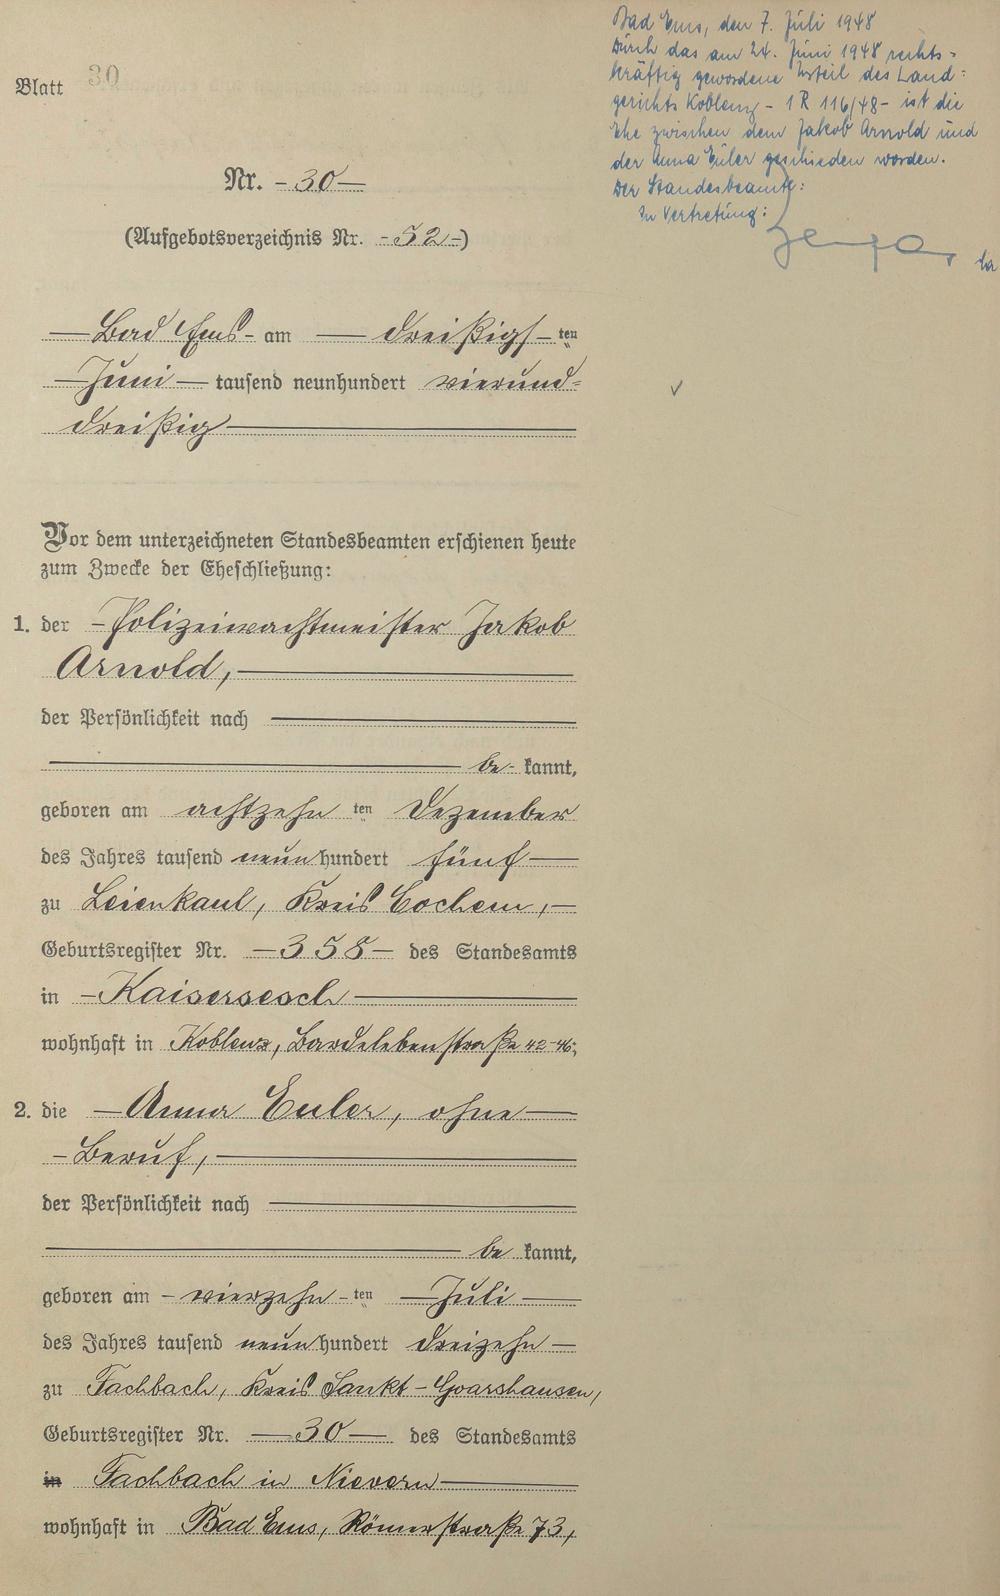 Bad Ems, den 7. Juli 1948
Durch das am 24. Juni 1948 rechts-
kräftig gewordene Urteil des Land-
gerichts Koblenz - 1 R 116/48 - ist die
Ehe zwischen dem Jakob Arnold und
der Anna Euler geschieden worden.
Der Standesbeamte:
In Vertretung:
Blatt 30
Nr. - 30 -
(Aufgebotsverzeichnis Nr. - 52 -)
- Bad Ems - am - dreißigs - ten
- Juni - tausend neunhundert vierund-
dreißig
Vor dem unterzeichneten Standesbeamten erschienen heute
zum Zwecke der Eheschließung:
1. der - Polizeiwachtmeister Jakob
Arnold,
der Persönlichkeit nach
be- kannt,
geboren am achtzehn ten Dezember
des Jahres tausend neun hundert fünf
zu Leienkaul, Kreis Cochem,
Geburtsregister Nr. - 358 - des Standesamts
in - Kaisersesch
wohnhaft in Koblenz, Bardelebenstraße 42-46;
2. die - Anna Euler, ohne
- Beruf,
der Persönlichkeit nach
be kannt,
geboren am - vierzehn - ten - Juli
des Jahres tausend neun hundert dreizehn
zu Fachbach, Kreis Sankt-Goarshausen,
Geburtsregister Nr. - 30 - des Standesamts
in Fachbach in Nievern
wohnhaft in Bad Ems, Römerstraße 73,